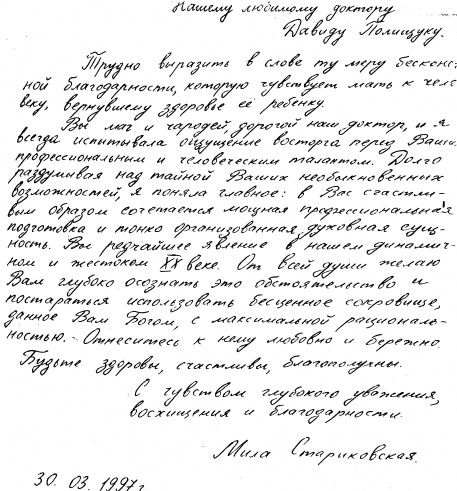 Нашему любимому доктору
Давиду Полищуку.
Трудно выразить в слове ту меру бесконеч-
ной благодарности, которую чувствует мать к чело-
веку, вернувшему здоровье её ребенку.
Вы маг и чародей, дорогой наш доктор, и я
всегда испытывала ощущение восторга перед Вашим
профессиональным и человеческим талантом. Долго
раздумывая над тайной Ваших необыкновенных
возможностей, я поняла главное: в Вас счастли-
вым образом сочетается мощная профессиональная
подготовка и тонко организованная, духовная сущ-
ность. Вы редчайшее явление в нашем динамич-
ном и жестоком XX веке. От всей души желаю
Вам глубоко осознать это обстоятельство и
постараться использовать бесценное сокровище,
данное Вам Богом, с максимальной рациональ-
ностью. - Отнеситесь к нему любовно и бережно.
Будьте здоровы, счастливы, благополучны.
С чувством глубокого уважения,
восхищения и благодарности.
Мила Стариковская.
30. 03. 1997 г